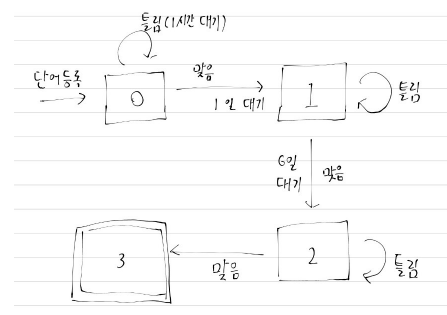 틀림(1시간 대기)
단어등록
0
맞음
1일 대기
1
틀림
6일
대기
맞음
3
맞음
2
틀림